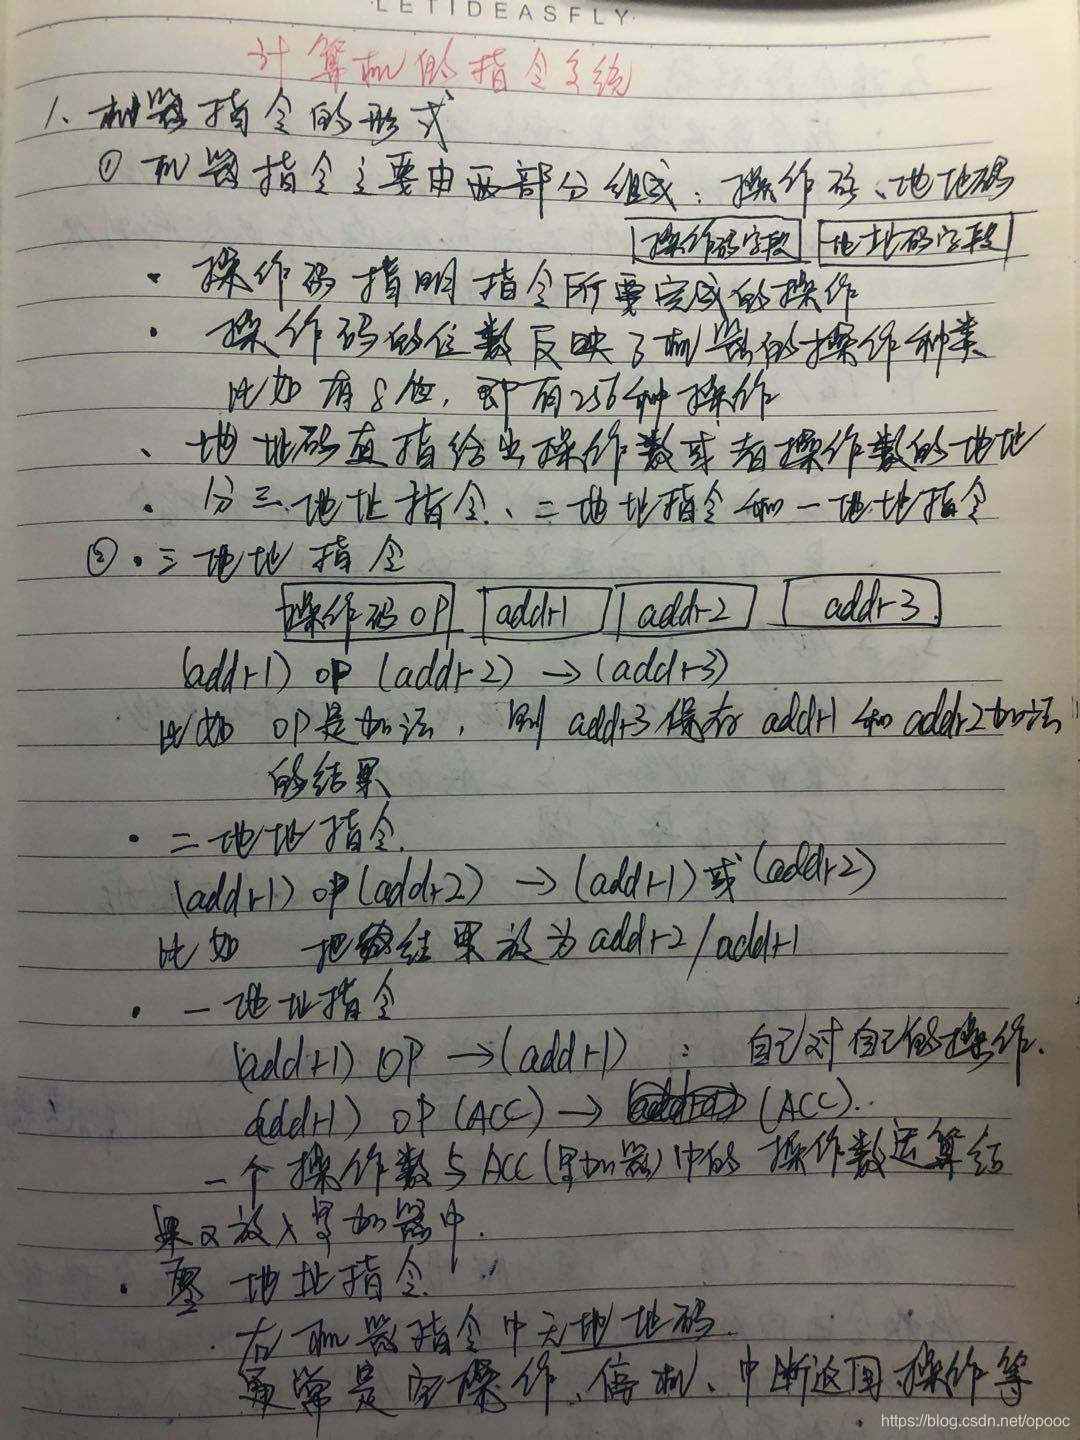 LETIDEASFLY
计算机的指令系统
1、机器指令的形式
① 机器指令主要由两部分组成：操作码、地址码
操作码字段 地址码字段
· 操作码指明指令所要完成的操作
· 操作码的位数反映了机器的操作种类
比如有8位，即有256种操作
、地址码直指给出操作数或者操作数的地址
· 分三地址指令、二地址指令和一地址指令
② · 三地址指令
操作码OP addr1 addr2 addr3
(addr1) OP (addr2) → (addr3)
比如 OP是加法，则 addr3保存addr1和addr2加法
的结果
· 二地址指令.
(addr1) OP (addr2) → (addr1)或(addr2)
比如 把结果放为addr2/addr1
· 一地址指令
(addr1) OP → (addr1) ： 自己对自己的操作.
(addr1) OP (ACC) → (ACC)..
一个操作数与ACC(累加器)中的操作数运算结
果又放入累加器中.
· 零地址指令.
在机器指令中无地址码.
通常是空操作、停机、中断返回操作等
https://blog.csdn.net/opooc